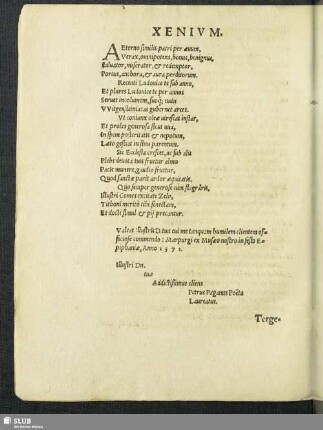 XENIVM.
AEterno similis patri per æuum,
Verax, omnipotens, bonus, benignus,
Saluator, miserator, & redemptor,
Portus, anchora, & aura perditorum.
Recenti Ludouice te sub anno,
Et plures Ludouice te per annos
Seruet incolumem, suoq; nutu
VVitgensteiniacas gubernet arces.
Vt coniunx oleæ uirescat instar,
Et proles generosa sicut uua,
In spem posteritatis & nepotum,
Læto gestiat in sinu parentum.
Sic Ecclesia crescet, ac sub alis
Plebs deuota tuis fruetur almo
Pacis munere, gaudio fruetur,
Quod sanctæ parit ardor æquitatis.
Quo semper generose cum flagraris,
Illustri Comes excitate Zelo,
Tutboni meritò tibi senectam,
Et docti simul & pij precantur.
Valeat Illustris D. tua cui me tanquam humilem clientem offi
ciose commendo: Marpurgi ex Musæo nostro in festo E-
piphaniæ, Anno 1571.
Illustri Dn.
tuæ
Addictissimus cliens
Petrus Paganus Poëta
Laureatus.
Terge-
SLUB
Wir führen Wissen.